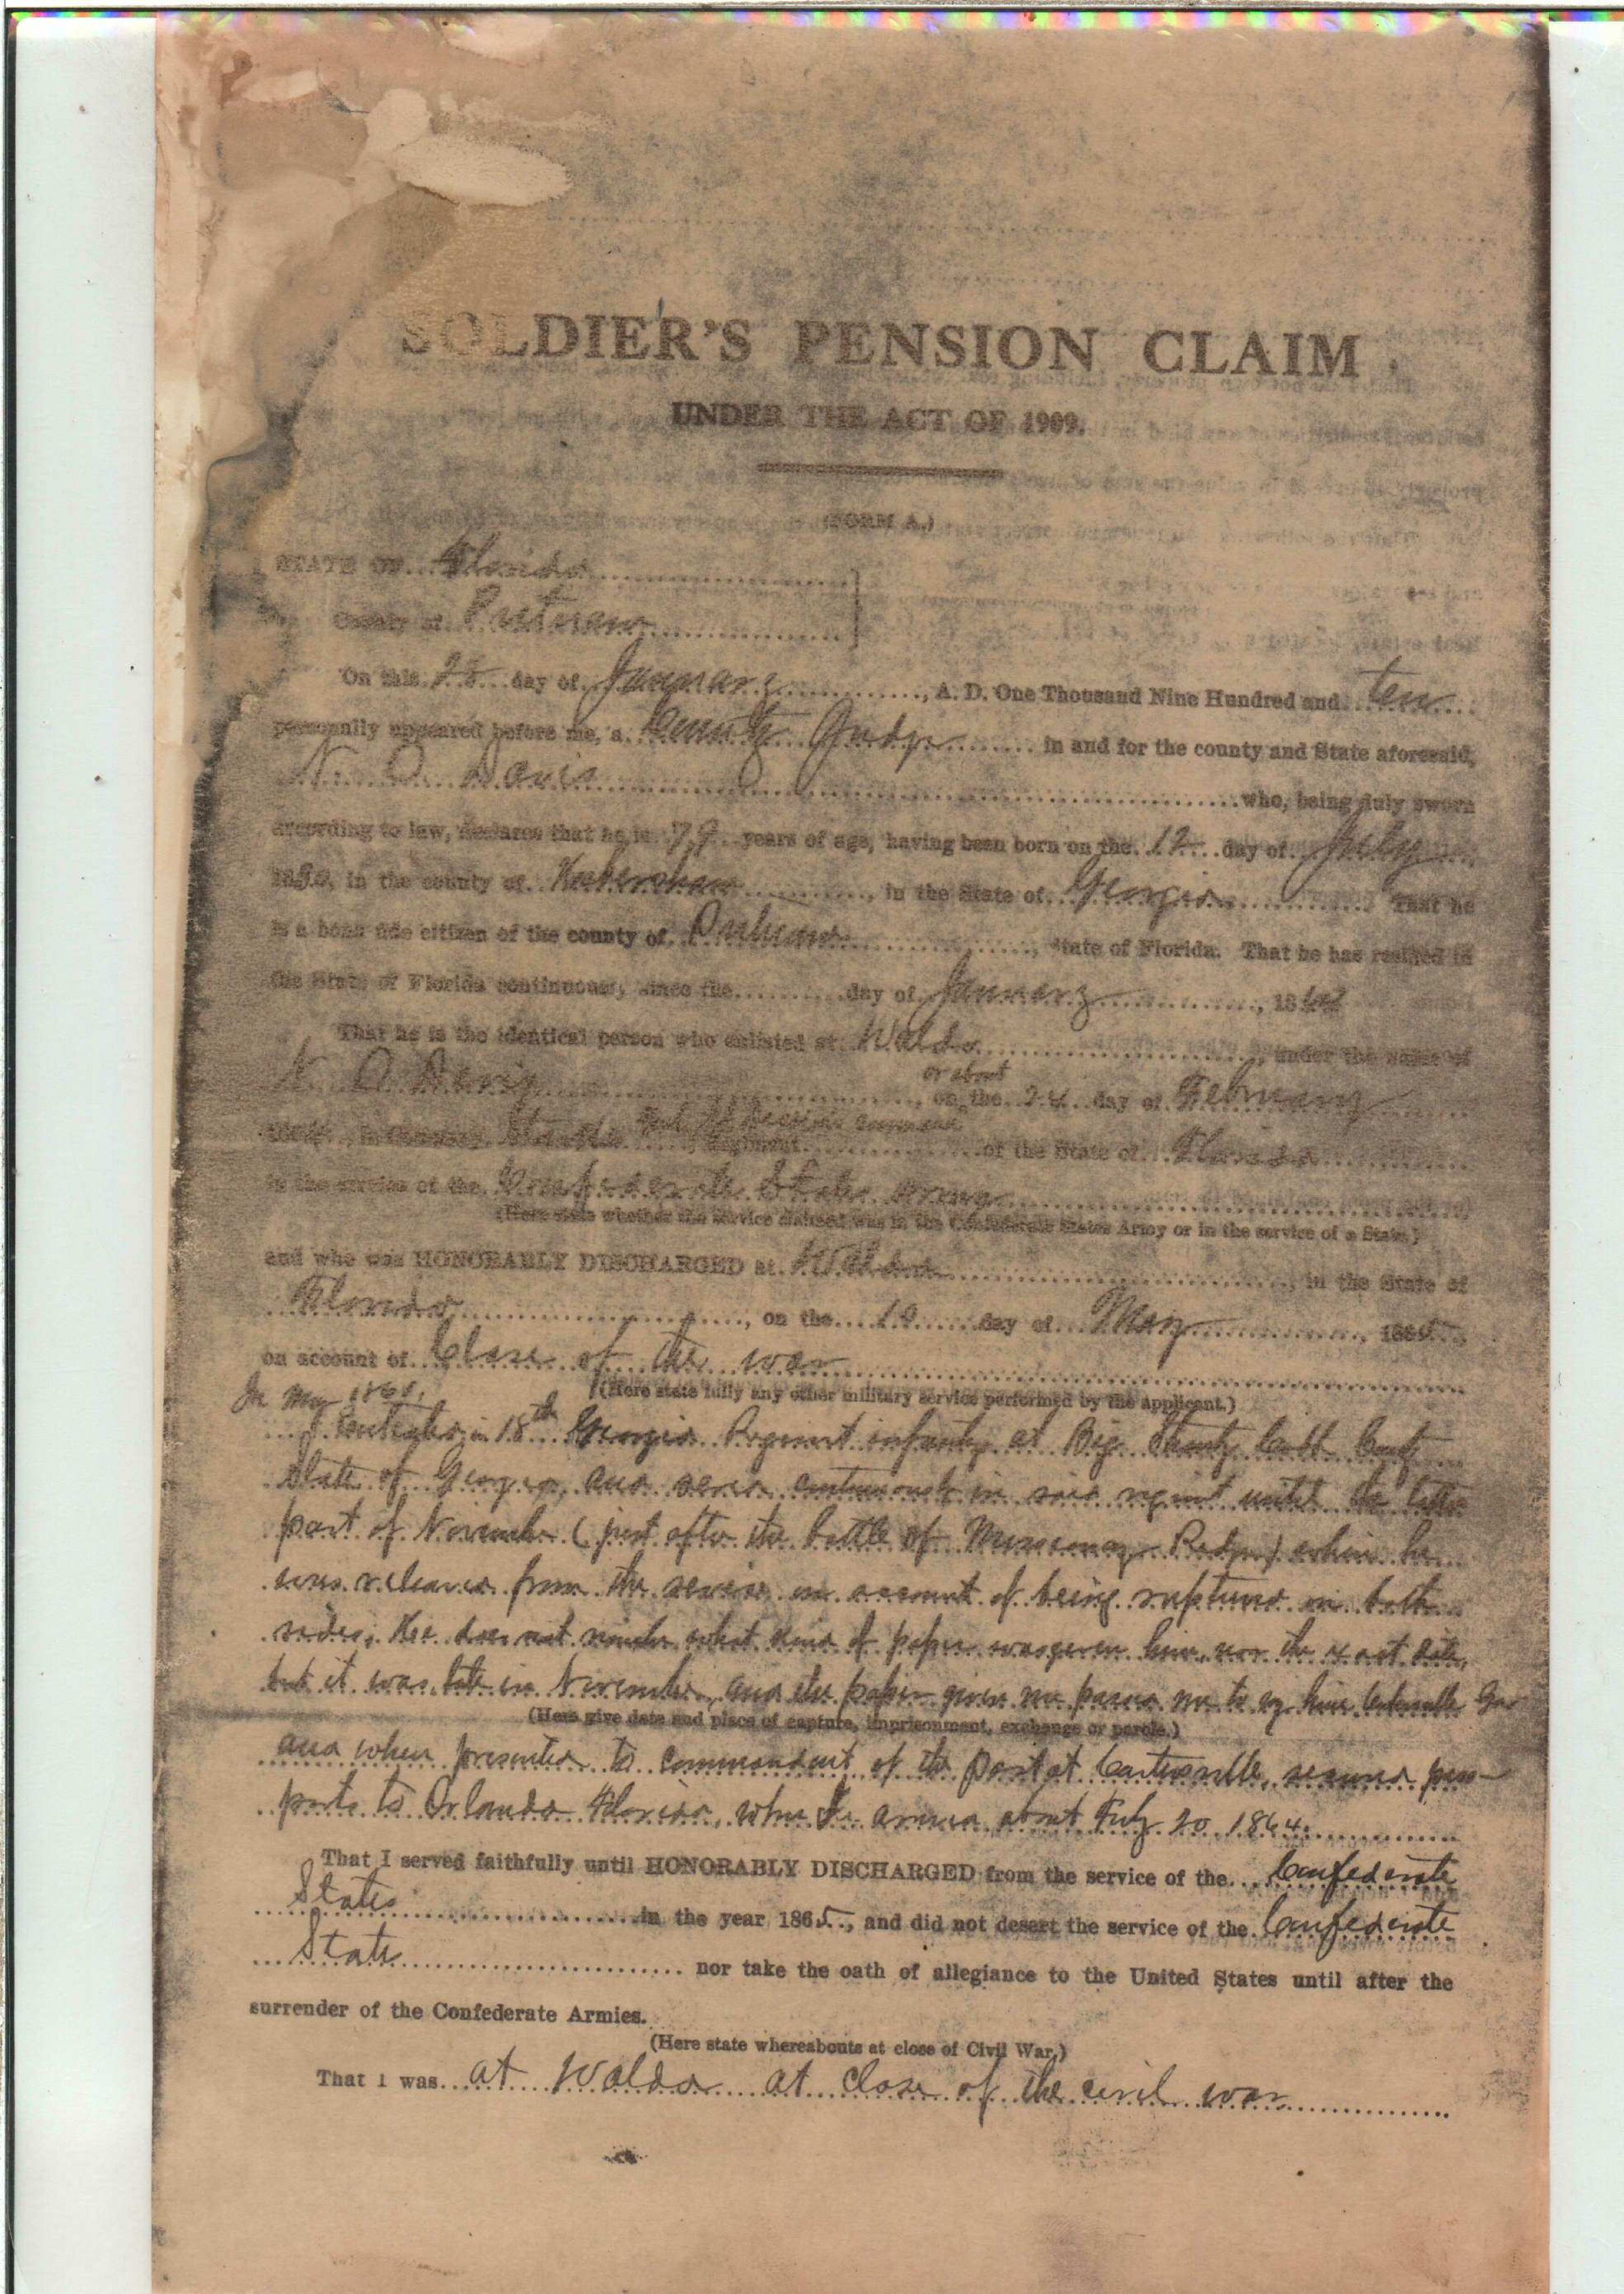 SOLDIER'S PENSION CLAIM
UNDER THE ACT OF 1909.
(FORM A.)
STATE OF Florida
County of Putnam
On this 25 day of January, A. D. One Thousand Nine Hundred and ten
personally appeared before me, a County Judge in and for the county and State aforesaid,
N. Davis who, being duly sworn
according to law, declares that he is 79 years of age, having been born on the 12 day of July
in the county of Habersham, in the State of Georgia. That he
is a bona fide citizen of the county of Putnam, State of Florida. That he has resided in
the State of Florida continuously since the day of January, 186
That he is the identical person who enlisted at Waldo, under the name of
N. Davis, or about on the 24 day of February
in Company Regiment of the State of Florida
in the service of the Confederate States Army
(Here state whether the service claimed was in the Confederate States Army or in the service of a State.)
and who was HONORABLY DISCHARGED at Waldo, in the State of
Florida, on the 10 day of May, 1865,
on account of Close of the war
(Here state fully any other military service performed by the applicant.)
In 1861.
I enlisted in 18th Georgia Regiment infantry at Big Shanty Cobb County
State of Georgia, and served continuously in said regiment until the latter
part of November (just after the battle of Missionary Ridge) when he
was released from the service on account of being ruptured on both
sides. He does not what kind of paper was given him, nor the exact date,
but it was late in November, and the paper given me passed me to my home Cartersville Ga
(Here give date and place of capture, imprisonment, exchange or parole.)
and when presented to commandant of the post at Cartersville, secured pass-
ports to Orlando Florida, when he arrived about July 20 1864.
That I served faithfully until HONORABLY DISCHARGED from the service of the Confederate
States in the year 1865, and did not desert the service of the Confederate
State nor take the oath of allegiance to the United States until after the
surrender of the Confederate Armies.
(Here state whereabouts at close of Civil War.)
That I was at Waldo at close of the civil war